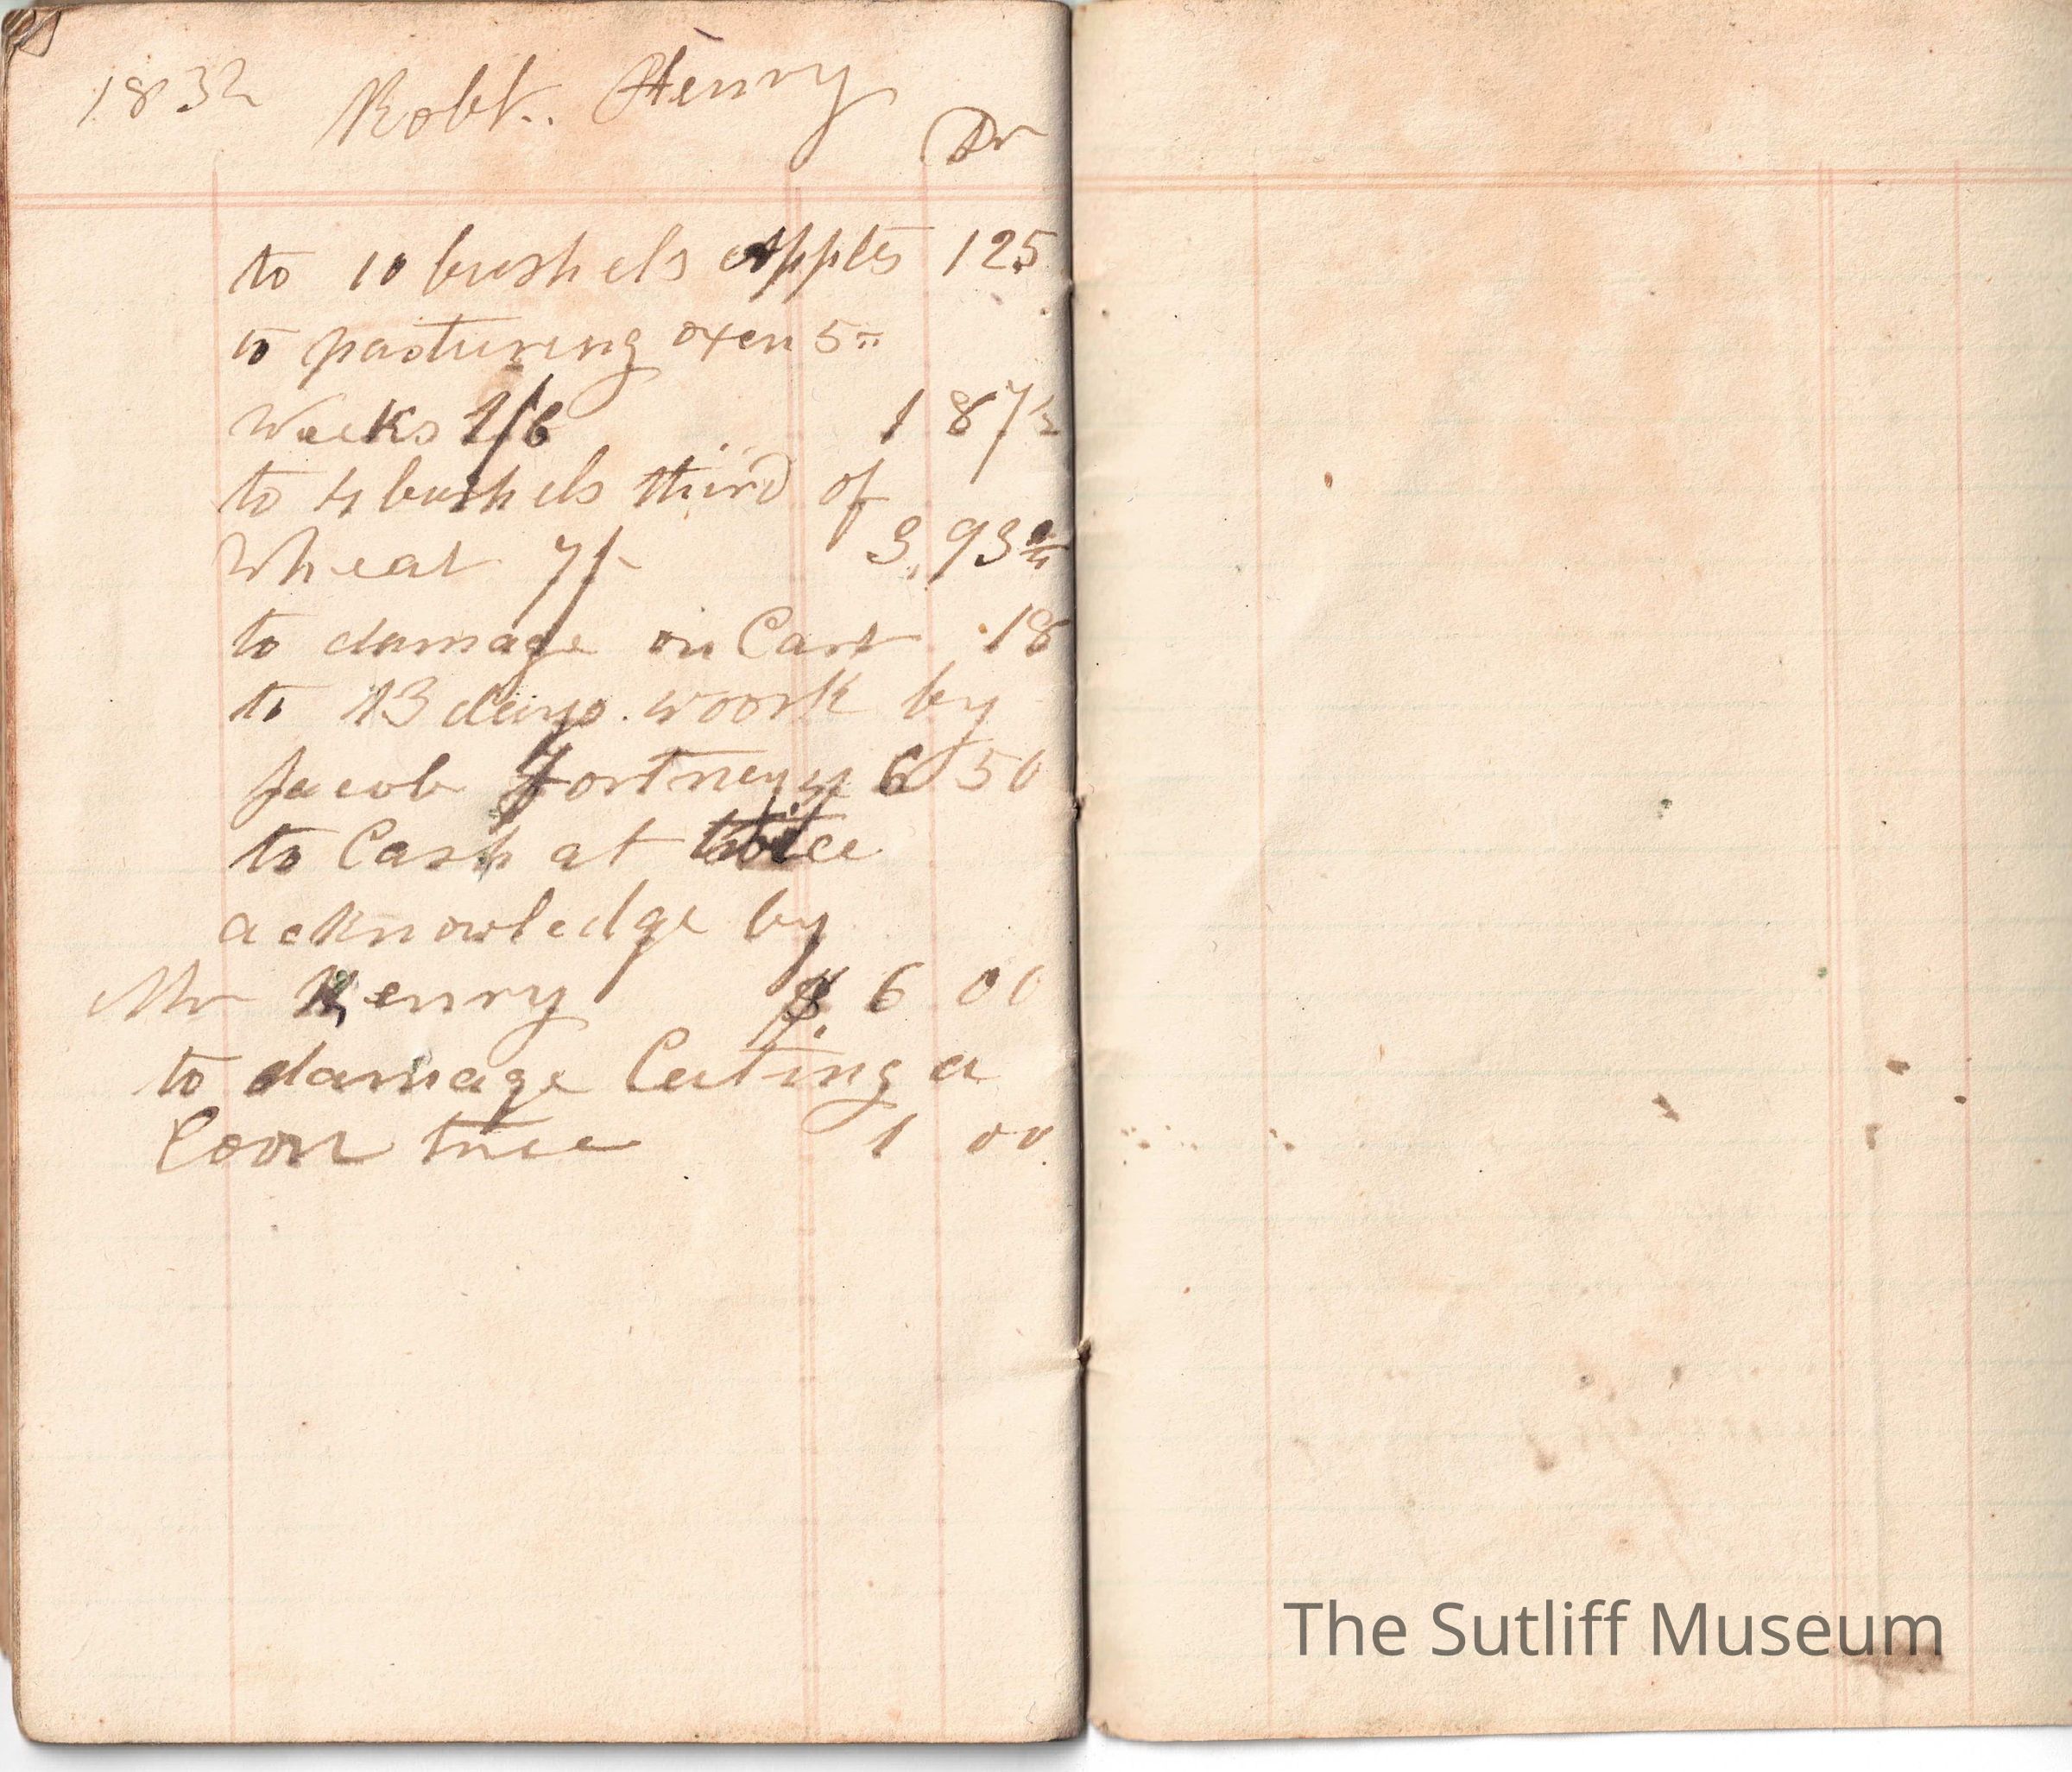 1832 Robt. Henry
Dr
to 10 bushels Apples 125
to pasturing oxen 5
Weeks /6 1 87½
to 4 bushels third of
Wheat 7/- 3,93¾
to damage on Cart 18
to 13 days woork by
Jacob Fortneyy 6 50
to Cash at
acknowledge by
Mr Henry $ 6 00
to damage Cuting a
Coon tree 1 00
The Sutliff Museum